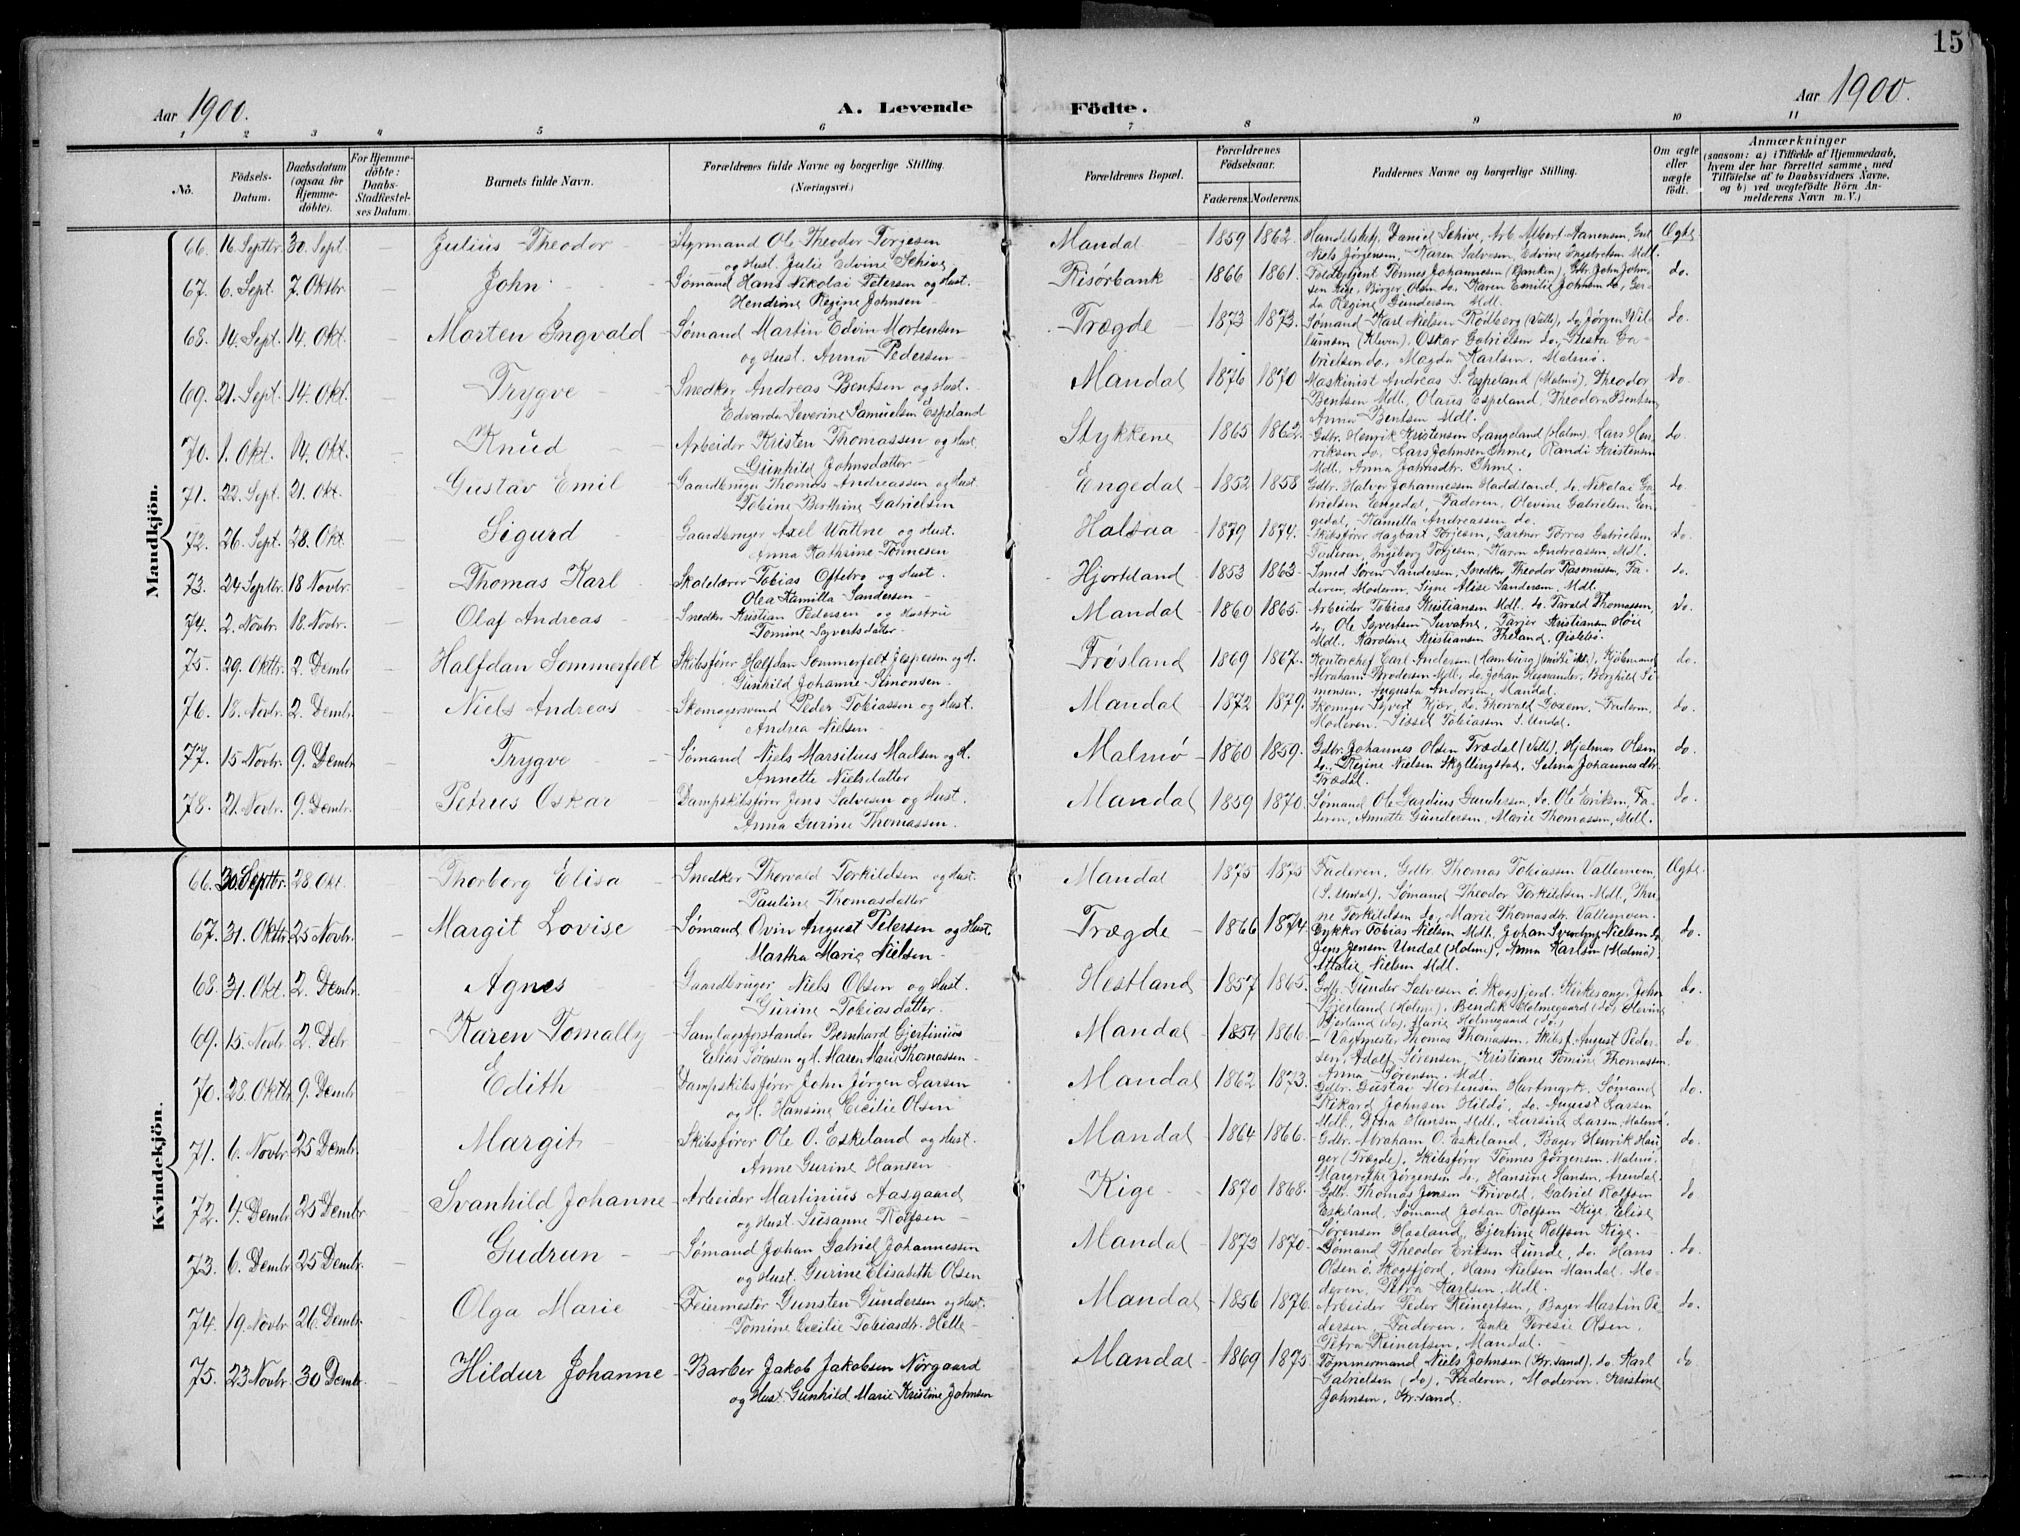 15
Aar 1900. A. Levende Födte. Aar 1900.
1 2 3 4 5 6 7 8 9 10 11
No. Födsels-Datum. Daabsdatum (ogsaa for Hjemme-döbte). For Hjemme-döbte: Daabs-Stadfæstel-ses Datum. Barnets fulde Navn. Forældrenes fulde Navne og borgerlige Stilling. (Næringsvei.) Forældrenes Bopæl. Forældrenes Födselsaar. Faderens. Moderens. Faddernes Navne og borgerlige Stilling. Om ægte eller uægte født. Anmærkninger (saasom: a) i Tilfælde af Hjemmedaab, hvem der har forrettet samme, med Tilføielse af to Daabsvidners Navne, og b) ved uægtefødte Börn An-melderens Navn m. V.)
Mandkjön.
66. 16 Septbr. 30. Sept. - Julius Theodor Styrmand Ole Theodor Torgesen Mandal 1859 1862. Handelsbetj. Daniel Schive, Arb. Albert Aanensen, Gul
og Hust. Julie Edvine Schive Niels Jørgensen, Karen Salvesen, Edvine Ingebretsen Mdl. Ægte
67. 6. Sept. 7. Oktbr. - John Sømand Hans Nikolai Petersen og Hust. Risørbank 1866 1861. Toldbetjent Tønnes Johannesen (Banken), Gdr. John John-
Hendrine Regine Johnsen sen Kige, Børger Olsen do, Karen Emilie Johnsen do, Ger-
da Regine Gundersen Mdl. do.
68. 14. Sept. 14. Okt. - Morten Ingvald Sømand Martin Edvin Mortensen Trægde 1873 1873. Sømand Karl Nielsen Rødberg (Valle), do Jørgen Vil-
og Hust. Anna Pedersen lumsen (Kleven), Oskar Gabrielsen do, Hesta Ga-
brielsen do, Magda Karlsen, Malmø. do.
69. 21. Sept. 14. Okt. - Trygve Snedker Andreas Bentsen og Hust. Mandal 1876 1870 Maskinist Andreas S. Espeland (Malmø), Theodor
Edvarda Severine Samuelsen Espeland Bentsen Mdl. Olaus Espeland, Theodora Bentsen,
Anna Bentsen Mdl. do
70. 1. Okt. 14. Okt. - Knud Arbeider Kristen Thomassen og Hust. Stykkene 1865 1862. Gdbr. Henrik Kristensen Langeland (Holme) Lars Hen-
Gunhild Johnsdatter riksen do, Lars Johnsen Ihme, Randi Kristensen
Mdl. Anna Johnsdtr. Ihme. do.
71. 22. Sept. 21. Okt. - Gustav Emil Gaardbruger Thomas Andreassen og Hust. Engedal 1852 1858 Gdbr. Halvor Johannessen Haddeland, do. Nikolai Ga-
Tobine Berthine Gabrielsen brielsen Engedal, Faderen, Olevine Gabrielsen En-
gedal, Kamilla Andreassen do. do
72. 26. Sept. 28. Okt. - Sigurd Gaardbruger Axel Wattne og Hust. Halsaa 1879 1874. Skibsfører Hagbart Torjesen, Gartner Torres Gabrielsen
Anna Kathrine Tønnesen Faderen, Ingeborg Torjesen, Karen Andreassen Mdl. do.
73. 24 Septbr. 18 Novbr. - Thomas Karl Skolelærer Tobias Oftebro og Hust. Hjorteland 1853 1863 Smed Søren Sandersen, Snedker Theodor Rasmussen, Fa-
Olea Kamilla Sandersen deren, Moderen, Signe Alise Sandersen, Mdl. do.
74. 2. Novbr. 18. Novbr. - Olaf Andreas Snedker Kristian Pedersen og Hustru Mandal 1860 1865. Arbeider Tobias Kristiansen Mdl. do. Tarald Thomassen,
Tomine Syvertsdatter do, Ole Syvertsen Suvatne, Tarjer Kristiansen Høie
Mdl. Karoline Kristiansen Theland, Øislebø. do.
75. 29. Oktbr. 2. Dembr. - Halfdan Sommerfelt Skibsfører Halfdan Sommerfelt Jespersen og H. Frøsland 1869 1867. Kontorchef Carl Andersen (Hamburg), Kjøbmand
Gunhild Johanne Simonsen Abraham Brodersen Mdl, do. Johan Kornander, Borghild Si-
mensen, Augusta Andersen, Mandal. do.
76. 18. Novbr. 2. Dembr. - Niels Andreas Skomagersvend Peder Tobiassen og Hust. Mandal 1872 1879. Skomager Syvert Kjær, do. Thorvald Goxem, Faderen,
Andrea Nielsen Moderen. Sissel Tobiassen S. Undal. do.
77. 15 Novbr. 9. Dembr. - Trygve Sømand Niels Marsilius Madsen og H. Malmø 1860 1859. Gdbr. Johannes Olsen Trædal (Valle), Hjalmar Olsen
Annette Nielsdatter do, Regine Nielsen Skyllingstad, Selma Johannesdtr.
Trædal. do.
78. 21. Novbr. 9. Dembr. - Petrus Oskar Dampskibsfører Jens Salvesen og Hust. Mandal 1859 1870. Sømand Ole Gardius Gundersen, do. Ole Eriksen, Fa-
Anna Gurine Thomassen. deren, Annette Gundersen, Marie Thomassen, Mdl. do.
Kvindekjön.
66. 30. Septbr. 28. Okt. - Thorborg Elisa Snedker Thorvald Torkildsen og Hust. Mandal 1875 1875 Faderen, Gdbr. Thomas Tobiassen Vallemoen,
Pauline Thomasdatter (S. Undal), Sømand Theodor Torkildsen Mdl, Thri-
ne Torkildsen do, Marie Thomasdtr. Vallemoen. Ægte.
67. 31. Oktbr. 25 Novbr. - Margit Lovise Sømand Ovin August Petersen og Hust. Trægde 1866 1874. Bykker Tobias Nielsen Mdl. Johan Nielsen do
Martha Marie Nielsen Jens Jensen Undal (Holme), Anna Karlsen (Malmø)
Attalie Nielsen Mdl. do.
68. 31. Okt. 2. Dembr. - Agnes Gaardbruger Niels Olsen og Hust. Hestland 1857 1865. Gdbr. Gunder Salvesen ø. Skogsfjord. Kirkesanger John
Gurine Tobiasdatter. Bjerland (Holme), Bendik Holmegaard (do) Olevine
Bjerland (do), Marie Holmegaard (do.) do.
69. 15. Novbr. 2. Debr. - Karen Tomally Samlagsforstander Bernhard Gjertinius Mandal 1854 1866. Vagtmester Thomas Thomassen, Skibsf. August Peder-
Elias Sørensen og H. Maren Marie Thomassen sen, Adolf Sørensen, Kristiane Tomine Thomassen
Anna Sørensen, Mdl. do.
70. 28. Oktbr. 9. Dembr. - Edith Dampskibsfører John Jørgen Larsen Mandal 1862 1873. Gdbr. Gustav Mortensen Hartmark, Sømand
og H. Hansine Cecilie Olsen Rikard Johnsen Hildø, do. August Larsen
Mdl., Dina Hansen Mdl., Lursine Larsen, Malmø. do.
71. 6. Novbr. 25 Dembr. - Margit Skibsfører Ole O. Eskeland og Hust. Mandal 1864 1866. Gdbr. Abraham O. Eskeland, Bager Henrik Hau-
Anne Gurine Hansen ger (Trægde), Skibsfører Tønnes Jørgensen, Malmø,
Margrethe Jørgensen do, Hansine Hansen, Arendal. do.
72. 4. Dembr. 25 Dembr. - Svanhild Johanne Arbeider Martinius Aasgaard Kige 1870 1868. Gdbr. Thomas Jensen Frivold, Gabriel Rolfsen
og Hust. Susanne Rolfsen Eskeland, Sømand Johan Rolfsen Kige, Elise
Sørensen Haaland, Gjertine Rolfsen Kige. do
73. 6. Dembr. 25 Dembr. - Gudrun Sømand Johan Gabriel Johannessen Mandal 1873 1870. Sømand Theodor Eriksen Lunde, do. Hans
og Hust. Gurine Elisabeth Olsen Olsen ø. Skogsfjord, Hans Nielsen Mandal. Mo-
deren, Petra Karlsen, Mdl. do.
74. 19. Novbr. 26 Dembr. - Olga Marie Feiermester Gunsten Gundersen og Hust. Mandal 1856 1876. Arbeider Peder Reinertsen, Bager Martin Pe-
Tomine Cecilie Tobiasdtr. Helle dersen, Faderen. Enke Teresie Olsen,
Petra Reinertsen, Mandal. do.
75. 23 Novbr. 30 Dembr. - Hildur Johanne Barber Jakob Jakobsen Nørgaard Mandal 1869 1875 Tømmermand Niels Johnsen (Kr.sand), do. Karl
og Hust. Gunhild Marie Kristine Johnsen Gabrielsen (do), Faderen, Moderen, Kristine
Johnsen, Kr.sand. do